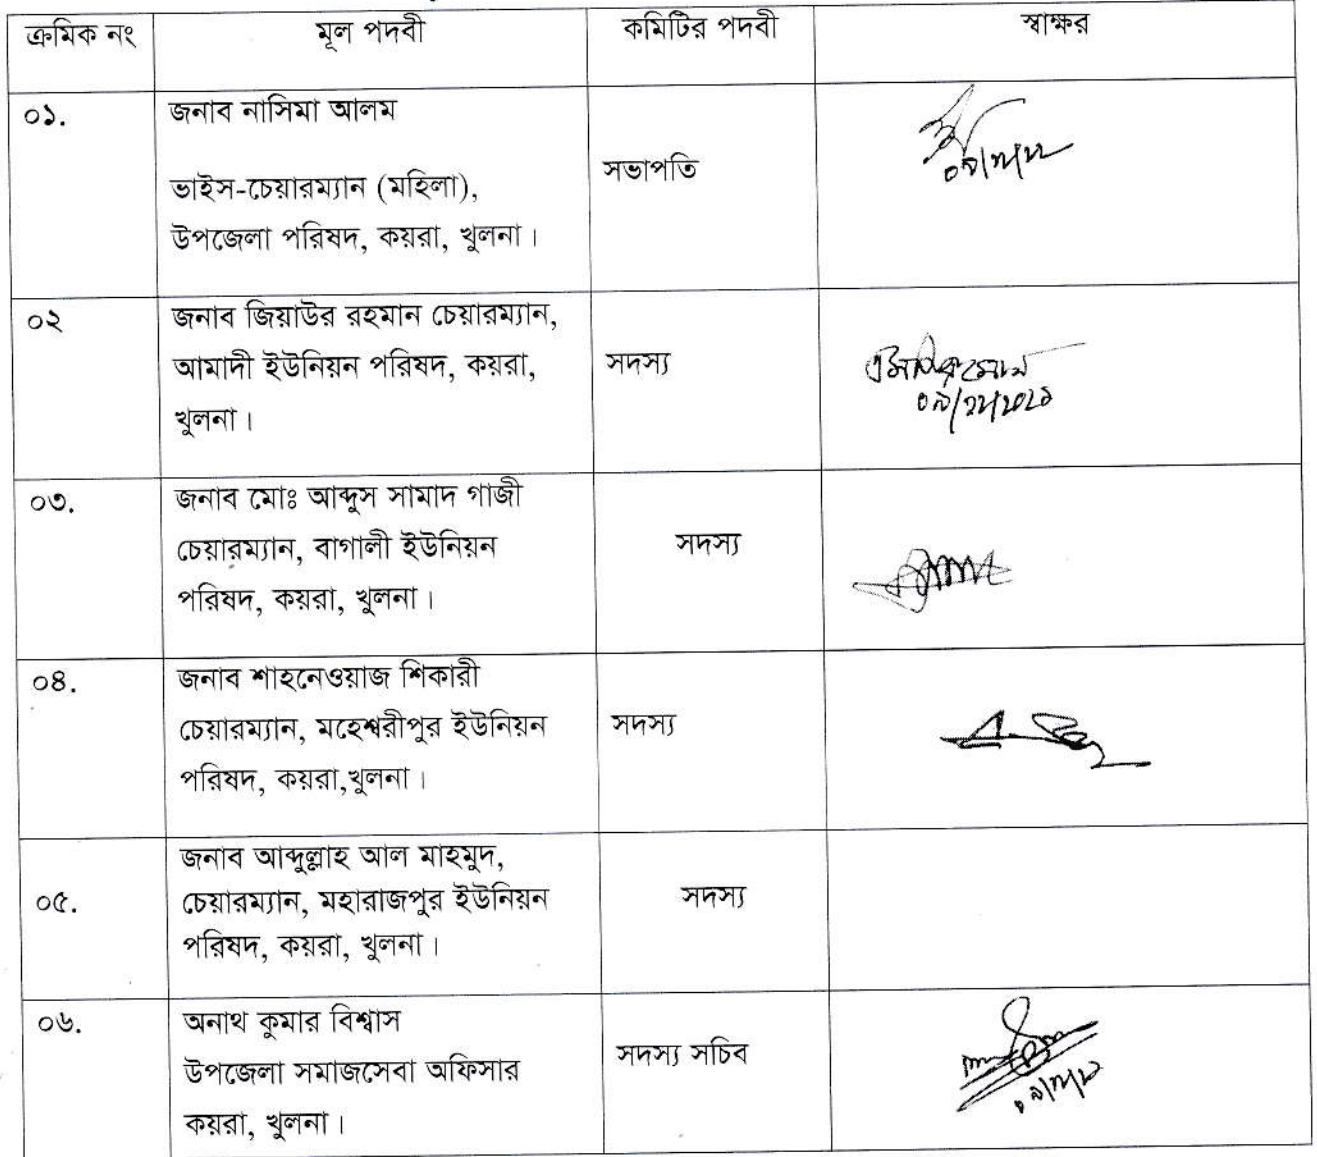 ক্রমিক নং মূল পদবী কমিটির পদবী স্বাক্ষর
০১. জনাব নাসিমা আলম
ভাইস-চেয়ারম্যান (মহিলা),
উপজেলা পরিষদ, কয়রা, খুলনা।
সভাপতি
০২ জনাব জিয়াউর রহমান চেয়ারম্যান,
আমাদী ইউনিয়ন পরিষদ, কয়রা,
খুলনা।
সদস্য
০৩. জনাব মোঃ আব্দুস সামাদ গাজী
চেয়ারম্যান, বাগালী ইউনিয়ন
পরিষদ, কয়রা, খুলনা।
সদস্য
০৪. জনাব শাহনেওয়াজ শিকারী
চেয়ারম্যান, মহেশ্বরীপুর ইউনিয়ন
পরিষদ, কয়রা,খুলনা।
সদস্য
০৫. জনাব আব্দুল্লাহ আল মাহমুদ,
চেয়ারম্যান, মহারাজপুর ইউনিয়ন
পরিষদ, কয়রা, খুলনা।
সদস্য
০৬. অনাথ কুমার বিশ্বাস
উপজেলা সমাজসেবা অফিসার
কয়রা, খুলনা।
সদস্য সচিব